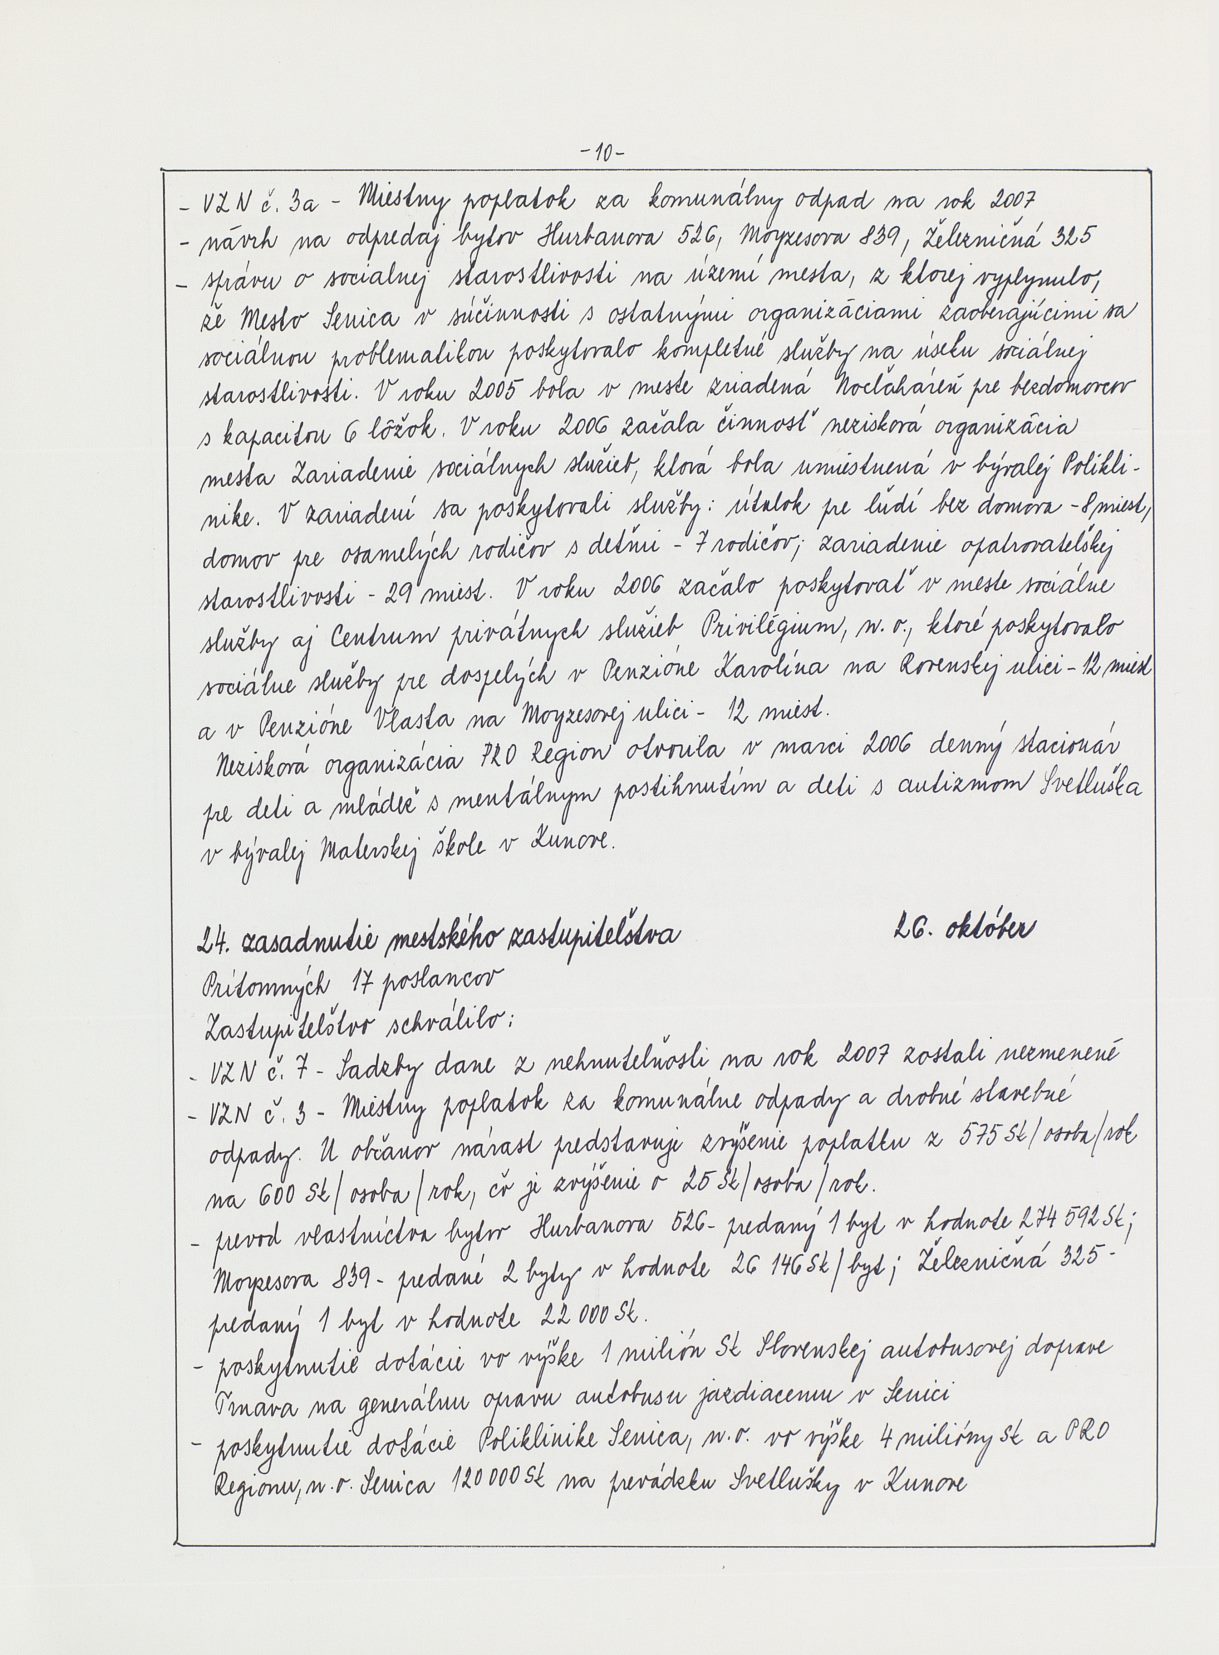 -10-
- VZN č. 3a - Miestny poplatok za komunálny odpad na rok 2007
- návrh na odpredaj bytov Hurbanova 526, Moyzesova 839, Železničná 325
- správu o sociálnej starostlivosti na území mesta, z ktorej vyplynulo,
že Mesto Senica v súčinnosti s ostatnými organizáciami zaoberajúcimi sa
sociálnou problematikou poskytovalo kompletné služby na úseku sociálnej
starostlivosti. V roku 2005 bola v meste zriadená Nocľaháreň pre bezdomovcov
s kapacitou 6 lôžok. V roku 2006 začala činnosť nezisková organizácia
mesta Zariadenie sociálnych služieb, ktorá bola umiestnená v bývalej Polikli-
nike. V zariadení sa poskytovali služby: útulok pre ľudí bez domova - 8 miest,
domov pre osamelých rodičov s deťmi - 7 rodičov; zariadenie opatrovateľskej
starostlivosti - 29 miest. V roku 2006 začalo poskytovať v meste sociálne
služby aj Centrum privátnych služieb Privilégium, n. o., ktoré poskytovalo
sociálne služby pre dospelých v Penzióne Karolína na Rovenskej ulici - 12 miest
a v Penzióne Vlasta na Moyzesovej ulici - 12 miest.
Nezisková organizácia PRO Region otvorila v marci 2006 denný stacionár
pre deti a mládež s mentálnym postihnutím a deti s autizmom Svetluška
v bývalej Materskej škole v Kunove.
24. zasadnutie mestského zastupiteľstva 26. október
Prítomných 17 poslancov
Zastupiteľstvo schválilo:
- VZN č. 7 - Sadzby dane z nehnuteľnosti na rok 2007 zostali nezmenené
- VZN č. 3 - Miestny poplatok za komunálne odpady a drobné stavebné
odpady. U občanov nárast predstavuje zvýšenie poplatku z 575 Sk/osoba/rok
na 600 Sk/osoba/rok, čo je zvýšenie o 25 Sk/osoba/rok.
- prevod vlastníctva bytov Hurbanova 526 - predaný 1 byt v hodnote 274 592 Sk;
Moyzesova 839 - predané 2 byty v hodnote 26 146 Sk/byt; Železničná 325 -
predaný 1 byt v hodnote 22 000 Sk.
- poskytnutie dotácie vo výške 1 milión Sk Slovenskej autobusovej doprave
Trnava na generálnu opravu autobusu jazdiacemu v Senici
- poskytnutie dotácie Poliklinike Senica, n. o. vo výške 4 milióny Sk a PRO
Regionu, n. o. Senica 120 000 Sk na prevádzku Svetlušky v Kunove